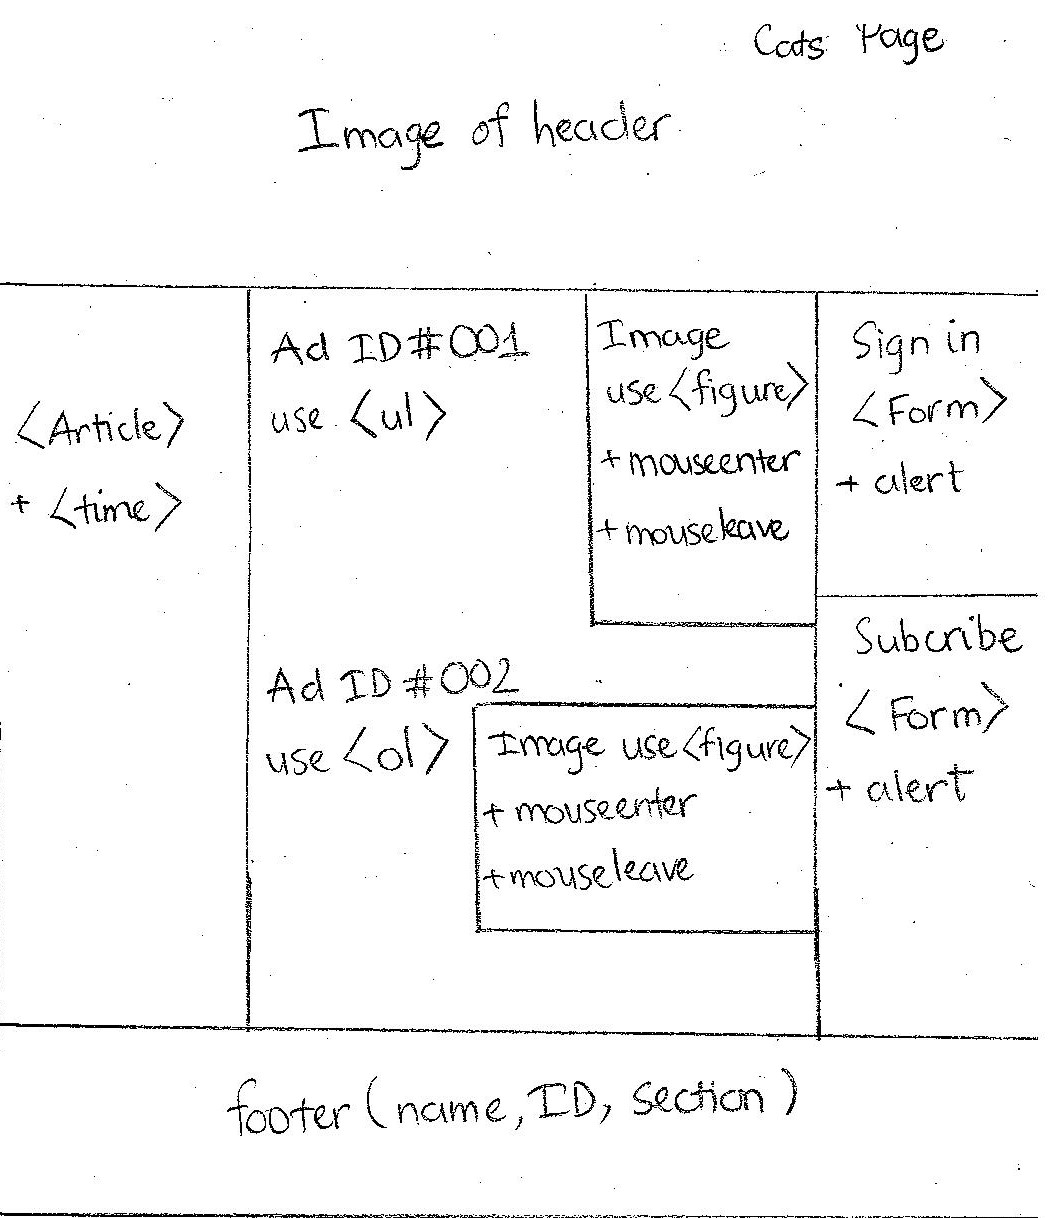 Cats Page
Image of header
<Article>
+ <time>
Ad ID#001
use <ul>
Image
use <figure>
+ mouseenter
+ mouseleave
Ad ID #002
use <ol>
Image use <figure>
+ mouseenter
+ mouseleave
Sign in
<Form>
+ alert
Subcribe
<Form>
+ alert
footer (name, ID, section)